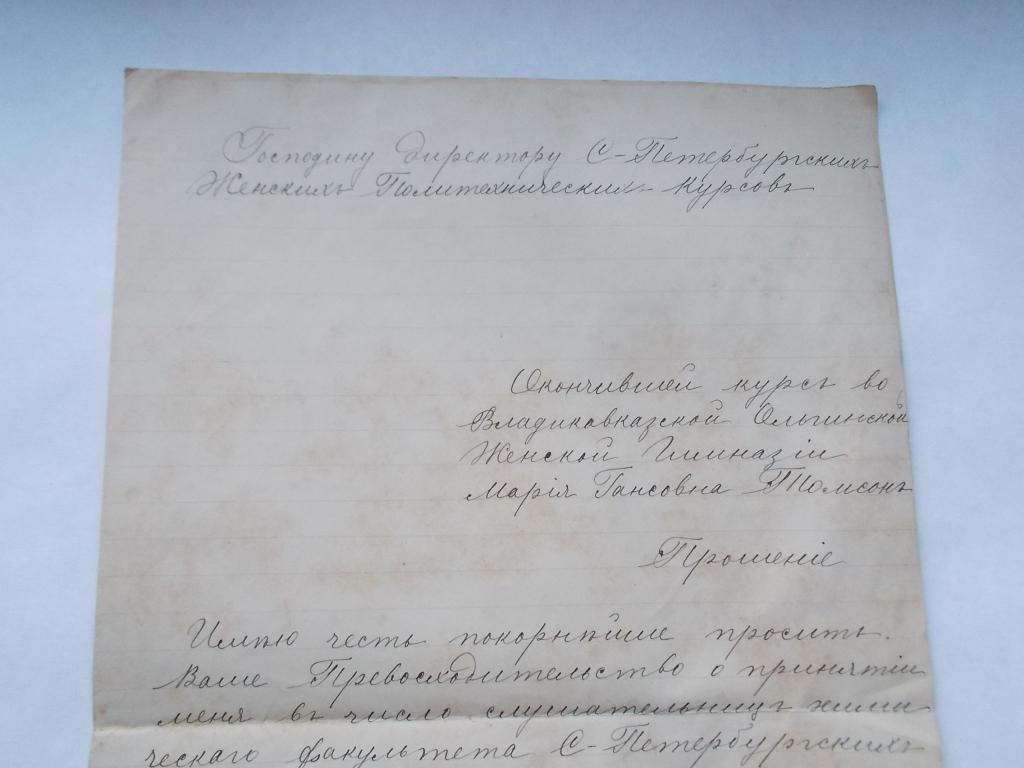 Господину директору С-Петербургскихъ
Женскихъ Политехническихъ Курсовъ
Окончившей курсъ во
Владикавказской Ольгинской
Женской Гимназіи
Марія Гансовна Томсонъ
Прошеніе
Имѣю честь покорнѣйше просить
Ваше Превосходительство о принятіи
меня въ число слушательницъ хими
ческаго факультета С-Петербургскихъ